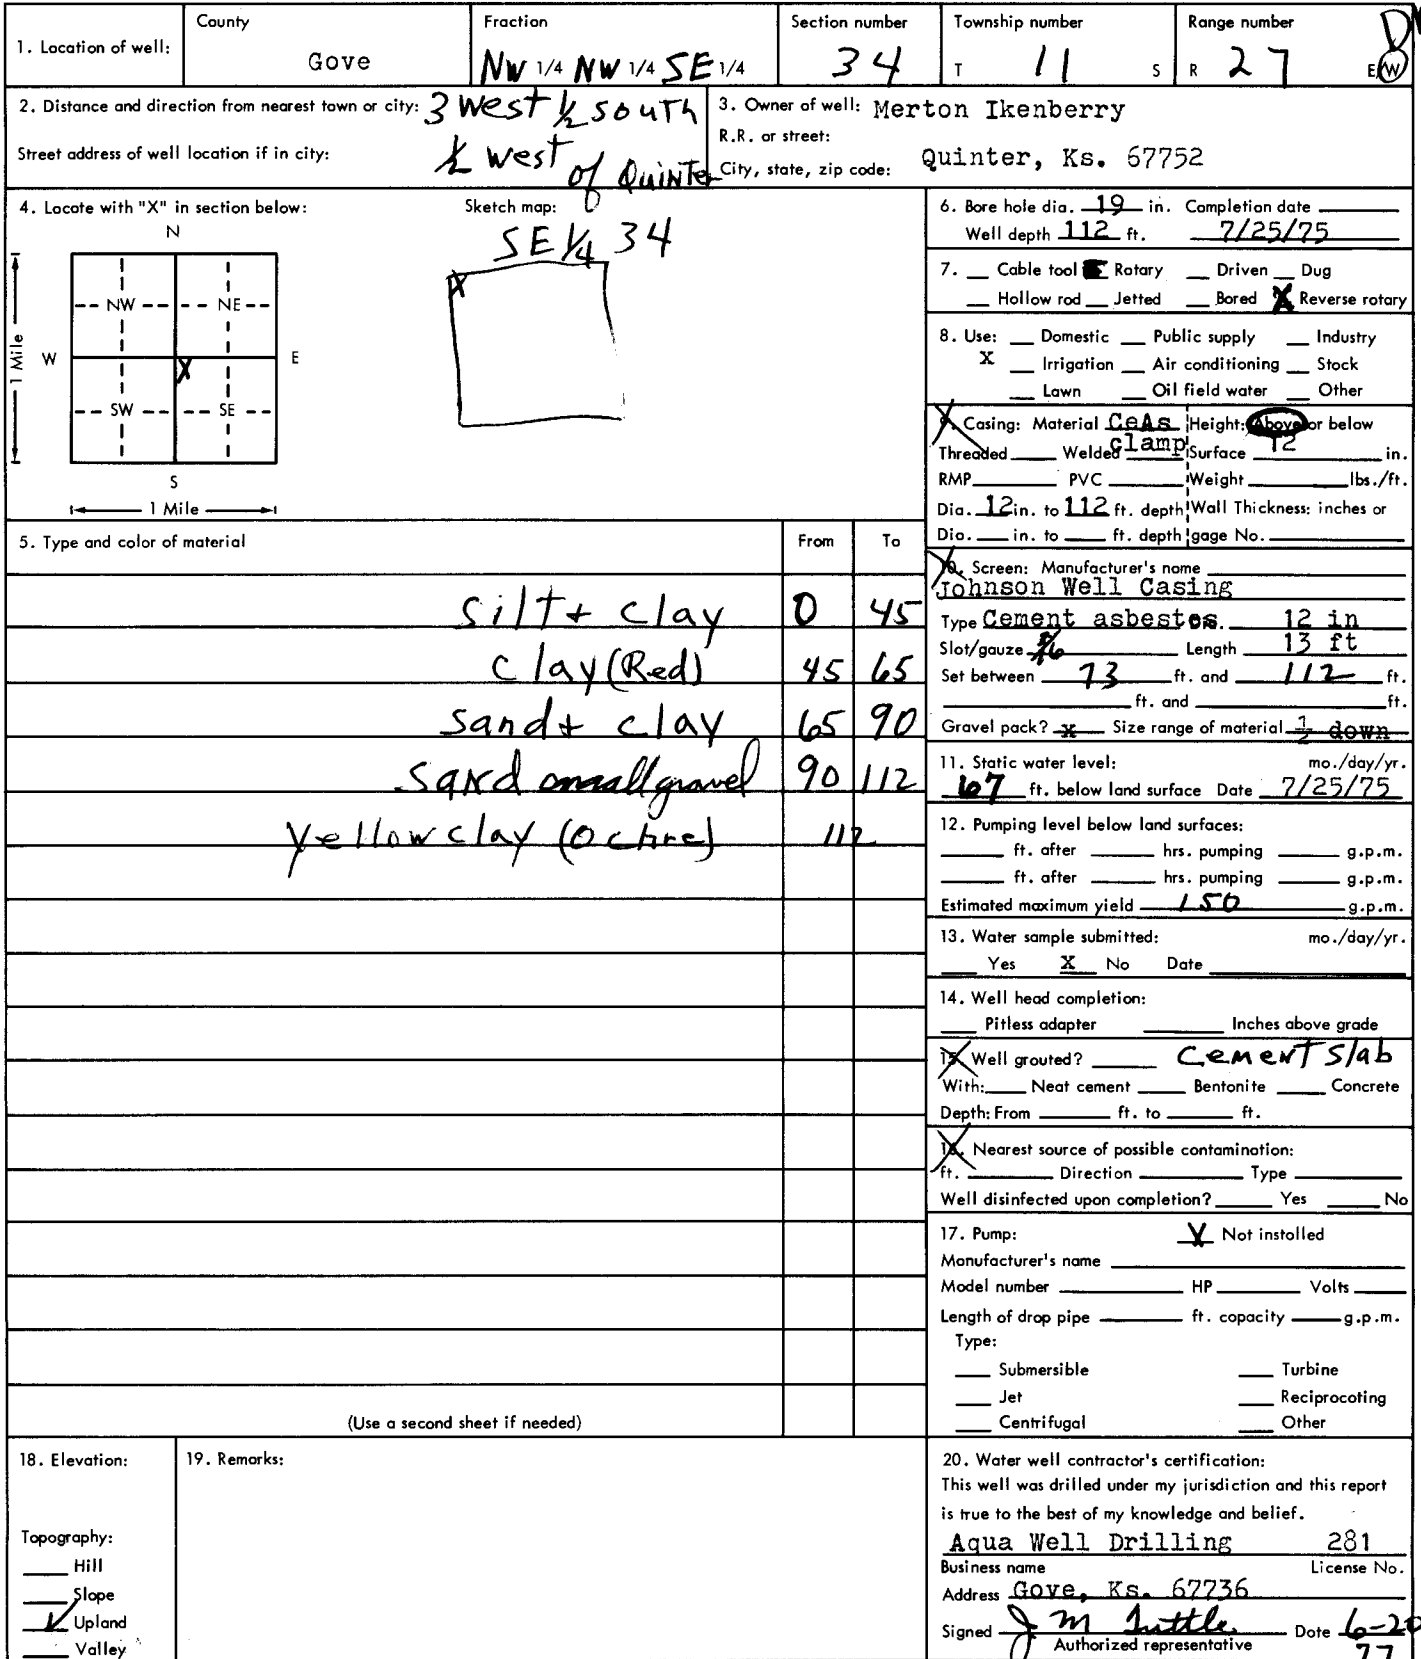 1. Location of well:
County
Gove
Fraction
NW 1/4 NW 1/4 SE 1/4
Section number
34
Township number
T 11 S
Range number
R 27 E/W
2. Distance and direction from nearest town or city: 3 West 1/2 south
Street address of well location if in city: 1/2 west of Quinter
3. Owner of well: Merton Ikenberry
R.R. or street:
City, state, zip code: Quinter, Ks. 67752
4. Locate with "X" in section below:
N
NW NE
W E
X
SW SE
S
1 Mile
1 Mile
Sketch map:
SE 1/4 34
X
5. Type and color of material From To
silt + clay 0 45
clay (Red) 45 65
sand + clay 65 90
sand small gravel 90 112
yellow clay (Ochre) 112
(Use a second sheet if needed)
6. Bore hole dia. 19 in. Completion date
Well depth 112 ft. 7/25/75
7. Cable tool Rotary Driven Dug
Hollow rod Jetted Bored X Reverse rotary
8. Use: Domestic Public supply Industry
X Irrigation Air conditioning Stock
Lawn Oil field water Other
9. Casing: Material CeAs Height: Above or below
Threaded Welded clamp Surface 12 in.
RMP PVC Weight lbs./ft.
Dia. 12 in. to 112 ft. depth Wall Thickness: inches or
Dia. in. to ft. depth gage No.
10. Screen: Manufacturer's name
Johnson Well Casing
Type Cement asbestos. 12 in
Slot/gauze Length 13 ft
Set between 73 ft. and 112 ft.
ft. and ft.
Gravel pack? x Size range of material 1/2 down
11. Static water level: mo./day/yr.
67 ft. below land surface Date 7/25/75
12. Pumping level below land surfaces:
ft. after hrs. pumping g.p.m.
ft. after hrs. pumping g.p.m.
Estimated maximum yield 150 g.p.m.
13. Water sample submitted: mo./day/yr.
Yes X No Date
14. Well head completion:
Pitless adapter Inches above grade
15. Well grouted? Cement Slab
With: Neat cement Bentonite Concrete
Depth: From ft. to ft.
16. Nearest source of possible contamination:
ft. Direction Type
Well disinfected upon completion? Yes No
17. Pump: X Not installed
Manufacturer's name
Model number HP Volts
Length of drop pipe ft. capacity g.p.m.
Type:
Submersible Turbine
Jet Reciprocating
Centrifugal Other
18. Elevation:
Topography:
Hill
Slope
Upland
Valley
19. Remarks:
20. Water well contractor's certification:
This well was drilled under my jurisdiction and this report
is true to the best of my knowledge and belief.
Aqua Well Drilling 281
Business name License No.
Address Gove, Ks. 67736
Signed J M Tuttle Date 6-20
Authorized representative 77